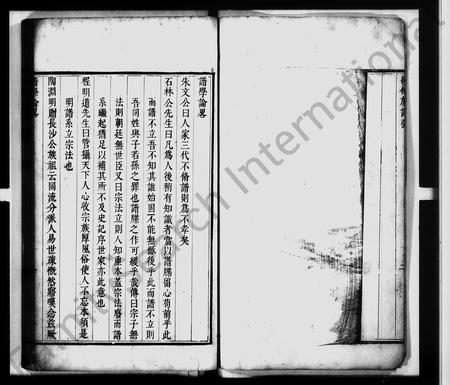 譜學論畧
朱文公曰人家三代不脩譜則爲不孝矣
石林公先生曰凡爲人後稍有知識者當以譜牒留心苟前乎此
而譜不立吾不知其誰始固不能無憾後乎此而譜不立則
吾同姓與子若孫之罪也譜牒之作可緩乎哉傳曰宗子無
法則朝廷無世臣又曰宗法立則人知重本蓋宗法廢而譜
系繼起猶足以補其所不及史記序世家亦此意也
程明道先生曰管攝天下人心收宗族厚風俗使人不忘本須是
明譜系立宗法也
陶淵明贈長沙公族祖云同流分派人易世疎慨然寤嘆念茲厥
譜學論畧
International